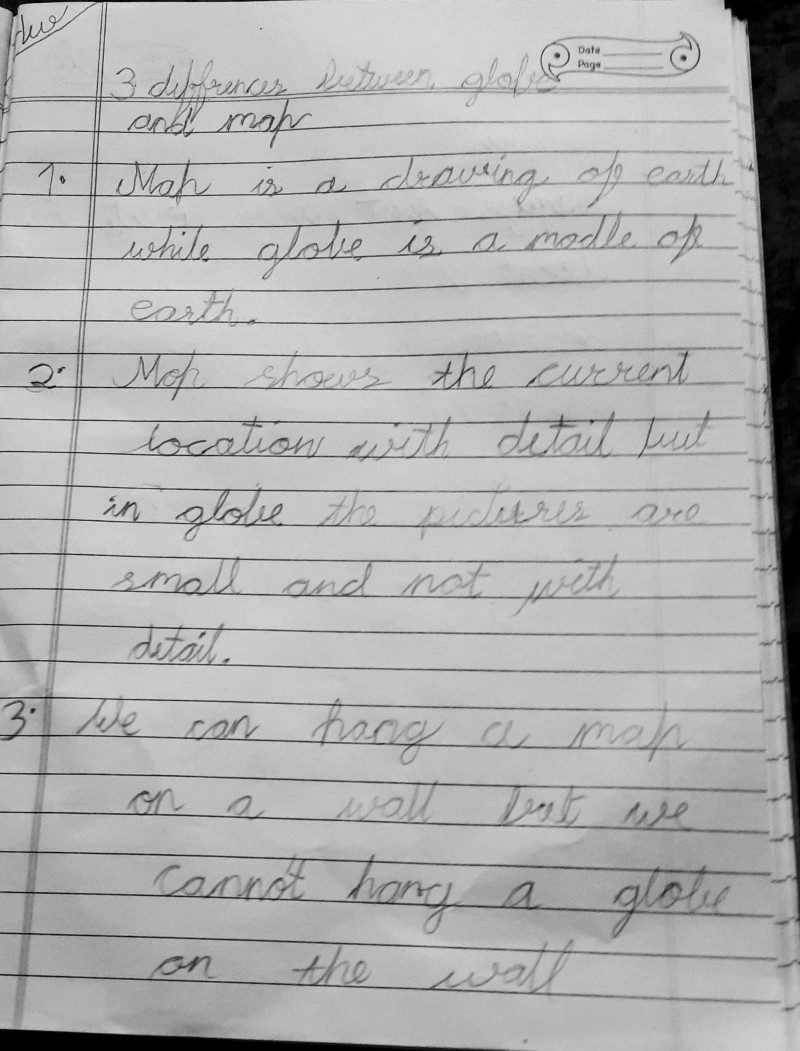 Date
Page
3 diffrences between globe
and map
1. Map is a drawing of earth
while globe is a modle of
earth.
2. Map shows the current
location with detail but
in globe the pictures are
small and not with
detail.
3. We can hang a map
on a wall but we
cannot hang a globe
on the wall